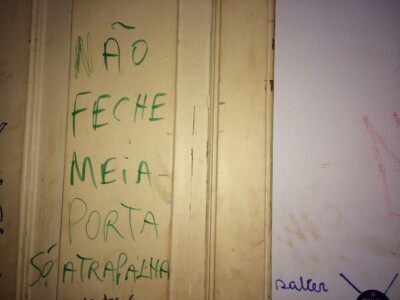 NÃO
FECHE
MEIA-
PORTA
SÓ ATRAPALHA
salter